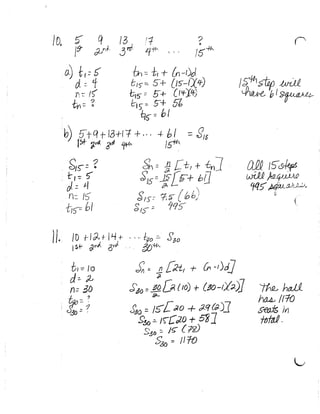 10. 5 9 13 17 ?
1st 2nd 3rd 4th ... 15th
a) t₁ = 5 tn = t₁ + (n-1)d
d = 4 t₁₅ = 5 + (15-1)(4)
n = 15 t₁₅ = 5 + (14)(4)
tn = ? t₁₅ = 5 + 56
t₁₅ = 61
15th step will have 61 squares
b) 5+9+13+17+... +61 = S₁₅
1st 2nd 3rd 4th 15th
S₁₅ = ? Sn = n/2 [t₁ + tn]
t₁ = 5 S₁₅ = 15/2 [5 + 61]
d = 4
n = 15 S₁₅ = 7.5 (66)
t₁₅ = 61 S₁₅ = 495
All 15 steps will require 495 squares.
11. 10 + 12 + 14 + ... t₃₀ = S₃₀
1st 2nd 3rd 30th
t₁ = 10 Sn = n/2 [2t₁ + (n-1)d]
d = 2
n = 30 S₃₀ = 30/2 [2(10) + (30-1)(2)]
t₃₀ = ?
S₃₀ = ? S₃₀ = 15[20 + 29(2)]
S₃₀ = 15[20 + 58]
S₃₀ = 15 (78)
S₃₀ = 1170
The hall has 1170 seats in total.